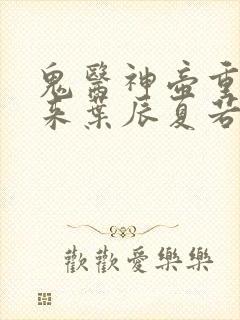 鬼醫神壺重
來葉辰夏若
歡歡愛樂樂